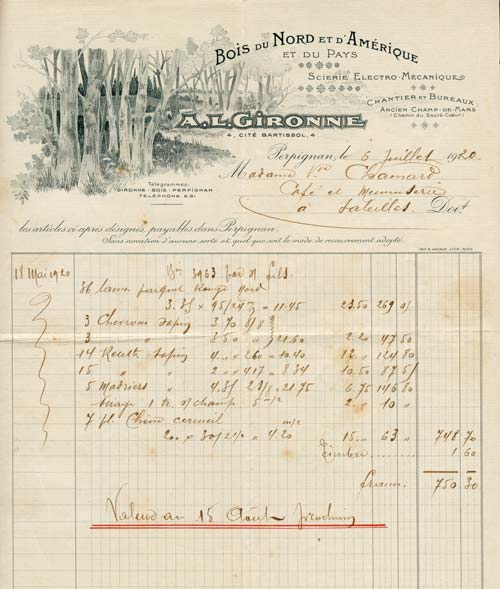 BOIS DU NORD ET D'AMÉRIQUE
ET DU PAYS
SCIERIE ELECTRO-MÉCANIQUE
CHANTIER ET BUREAUX:
ANCIEN CHAMP-DE-MARS
(Chemin du Sacré-Cœur)
A. L. GIRONNE
4, CITÉ BARTISSOL, 4
Télégrammes:
GIRONNE-BOIS-PERPIGNAN
TÉLÉPHONE 2.91
Perpignan, le 6 Juillet 1920
Madame Vve
Café et
à Doit
les articles ci-après désignés, payables dans Perpignan.
Sans novation d'aucune sorte et quel que soit le mode de recouvrement adopté.
18 Mai 1920 Bon 3963 par s/ fils.
36 lames parquet Rouge Nord
11.45 23.50 269 0/
3 Chevrons Sapin 3.70
3 " 3.50 21.60 2.20 47 50
14 Sapin 4 " × 260 = 10.40 12 " 124 80
15 " " 2 " × 417 = 8.34 10.50 87 5/
5 Madriers " 21.75 6.75 146 80
1 tr. s/ champ 2 " 10 "
7 pl. Chêne m/2
4.20 15 " 63 " 748 70
Timbre 1 60
Francs: 750 30
Valeur au 15 Août prochain